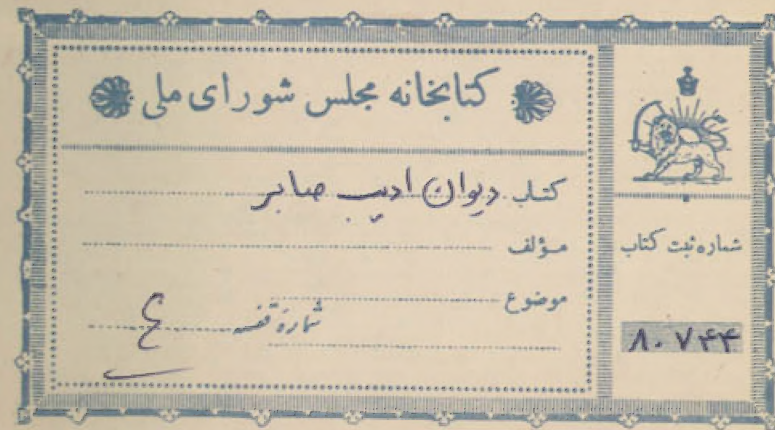 کتابخانه مجلس شورای ملی
کتاب دیوان ادیب صابر
مؤلف
موضوع
شماره قفسه
شماره ثبت کتاب
۸۰۷۴۴